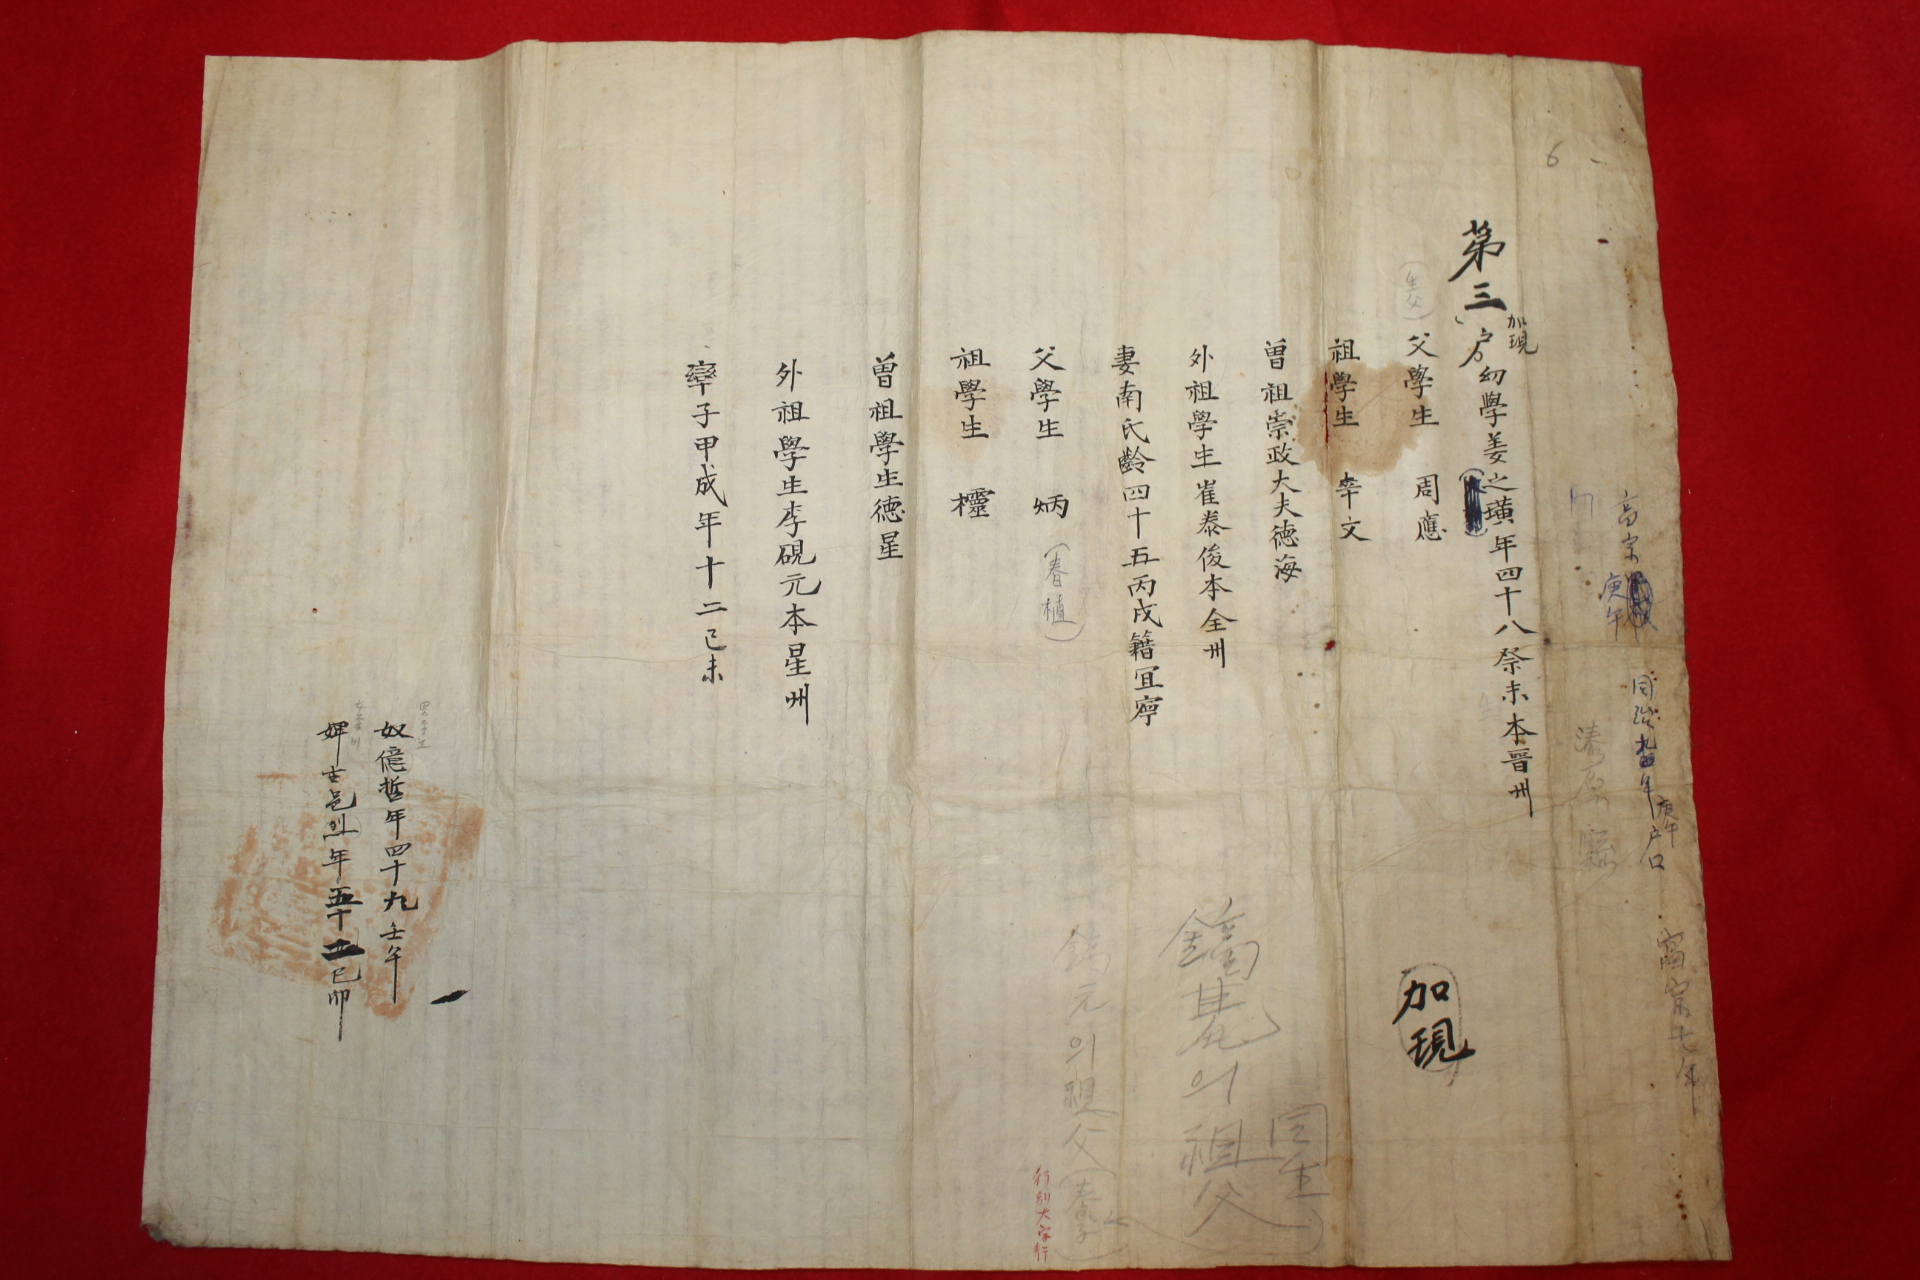 高宗 庚午
同治九年庚午戶口
高宗七年
6
第三戶幼學姜之璜年四十八癸未本晋州
加現
加現
父學生 周應
(生父)
祖學生 幸文
曽祖崇政大夫德海
外祖學生崔泰俊本全州
妻南氏齡四十五丙戌籍宜寧
父學生 炳
(春植)
祖學生 欞
曽祖學生德星
外祖學生李硯元本星州
率子甲成年十二己未
奴億哲年四十九壬午
婢古邑外年五十二己卯
의祖父
同生
元의祖父